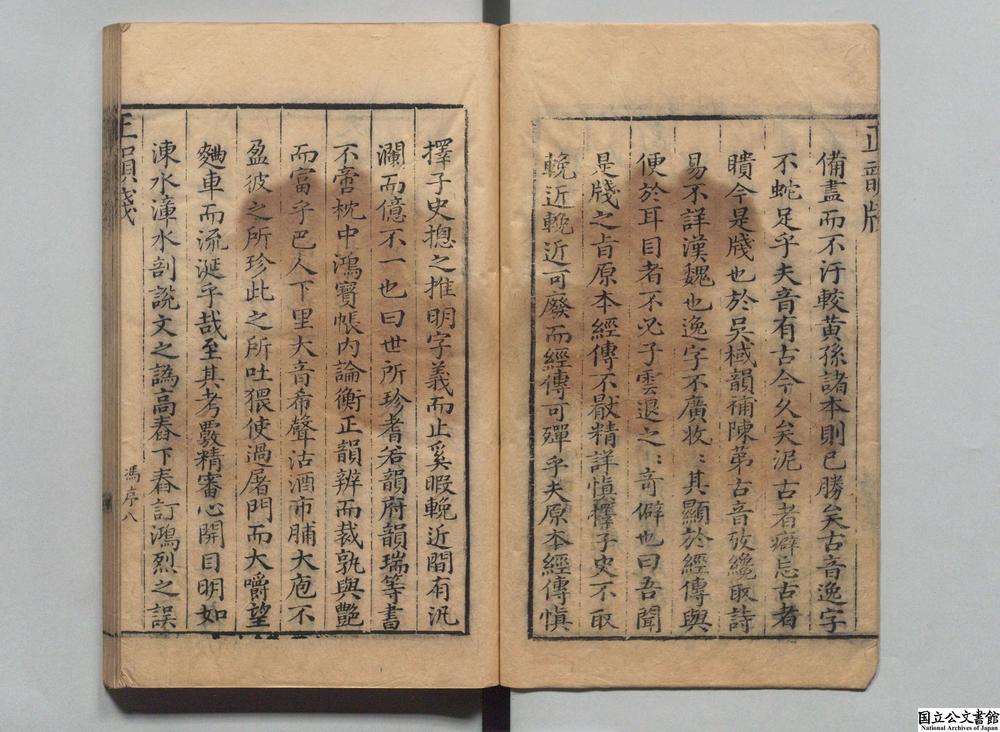 備盡而不汙較黃孫諸本則已勝矣古音逸字
不蛇足乎夫音有古今久矣泥古者癖忌古者
瞶今是牋也於吳棫韻補陳第古音攷纔取詩
易不詳漢魏也逸字不廣收〻其顯於經傳與
便於耳目者不必子雲退之〻奇僻也曰吾聞
是牋之旨原本經傳不厭精詳慎擇子史不取
輓近輓近可廢而經傳可殫乎夫原本經傳慎
擇子史揔之推明字義而止奚暇輓近間有汎
瀾而億不一也曰世所珍耆若韻府韻瑞等書
不啻枕中鴻寶帳內論衡正韻辨而裁孰與艷
而富乎巴人下里大音希聲沽酒市脯大庖不
盈彼之所珍此之所吐猥使過屠門而大嚼望
麯車而流涎乎哉至其考覈精審心開目明如
涑水漳水剖說文之譌高舂下舂訂鴻烈之誤
正韻牋
馮序八
国立公文書館
National Archives of Japan